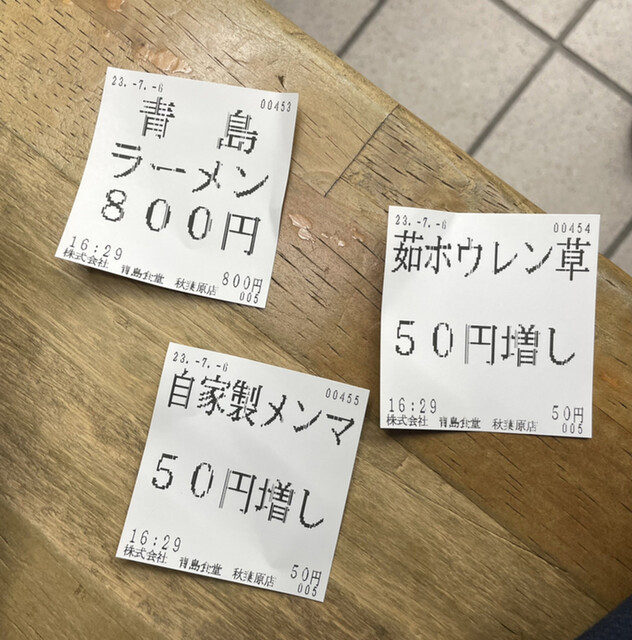 23.-7.-6 00453
青 島
ラーメン
800円
16:29 800円
株式会社 青島食堂 秋葉原店 005
23.-7.-6 00454
茹ホウレン草
50円増し
16:29 50円
株式会社 青島食堂 秋葉原店 005
23.-7.-6 00455
自家製メンマ
50円増し
16:29 50円
株式会社 青島食堂 秋葉原店 005